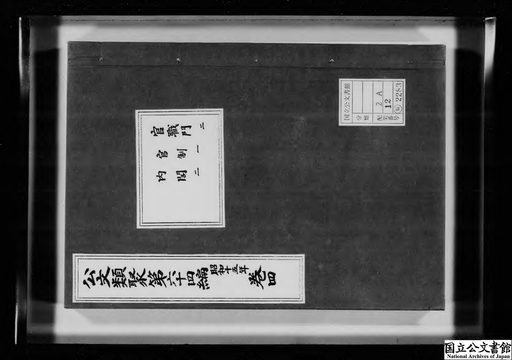 公文類聚第六十四編 昭和十五年 巻四
官職門二
官制一
内閣二
国立公文書館
分類
配架番号
2A
12
類2283
国立公文書館
National Archives of Japan